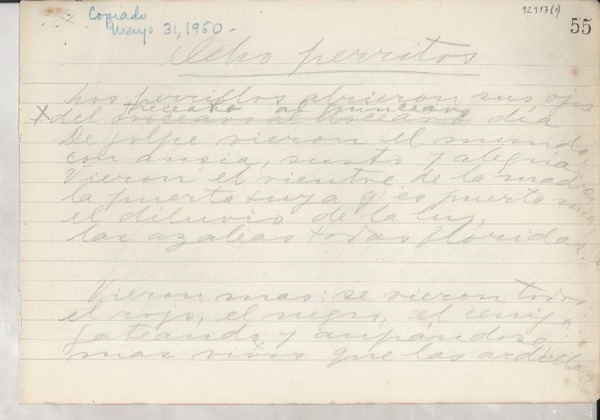 Copiado
Mayo 31, 1950 -
12117(1)
55
Ocho perritos
Los perrillos abrieron sus ojos
trecearo al quinceavo
X del treceavo al quinceavo día
De golpe vieron el mundo,
con ansia, susto y alegría
Vieron el vientre de la madre
la puerta suya q' es puerta mía
el diluvio de la luz,
las azaleas todas floridas.
Vieron mas: se vieron todos
el rojo, el negro, el ceniza
gateando y aupándose,
mas vivos que las ardillas